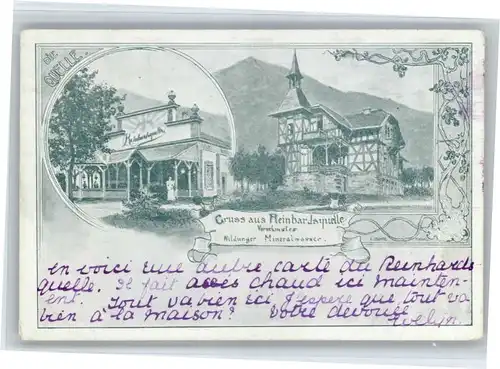 DIE QUELLE.
Reinhardsquelle
Gruss aus Reinhardsquelle
Vornehmstes
Wildunger Mineralwasser.
en voici une autre carte du Reinhards
quelle. Il fait assés chaud ici mainten-
ent. Tout va bien ici, J'espère que tout va
bien à la maison? Votre devouée
Evelyn.